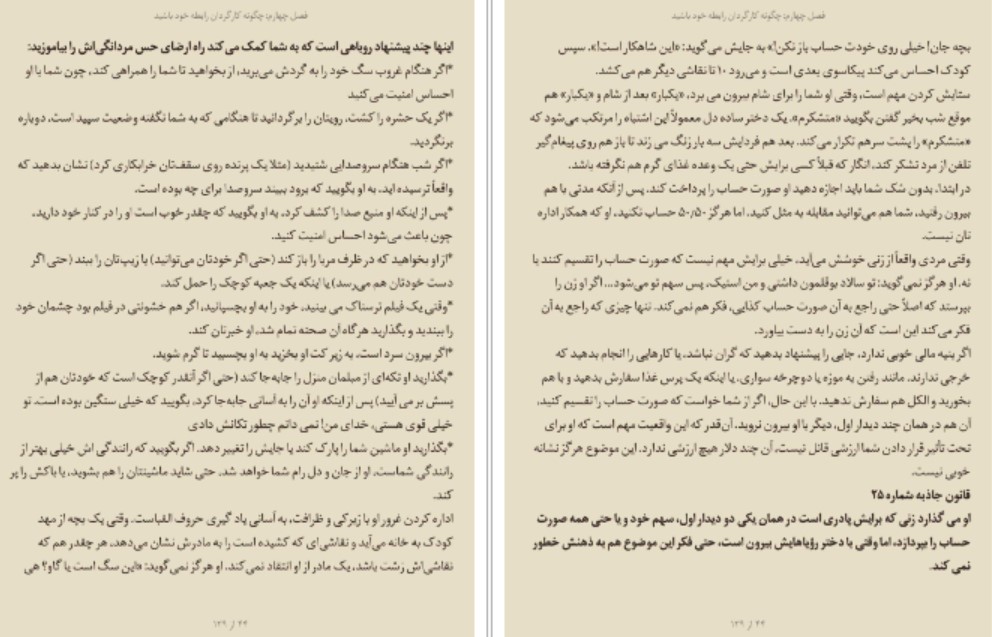 فصل چهارم: چگونه کارگردان رابطه خود باشید
اینها چند پیشنهاد روباهی است که به شما کمک می کند راه ارضای حس مردانگی‌اش را بیاموزید:
*اگر هنگام غروب سگ خود را به گردش می‌برید، از بخواهید تا شما را همراهی کند، چون شما با او
احساس امنیت می کنید
*اگر یک حشره را کشت، رویتان را برگردانید تا هنگامی که به شما نگفته وضعیت سپید است، دوباره
برنگردید.
*اگر شب هنگام سروصدایی شنیدید (مثلا یک پرنده روی سقف‌تان خرابکاری کرد) نشان بدهید که
واقعاً ترسیده اید. به او بگویید که برود ببیند سروصدا برای چه بوده است.
*پس از اینکه او منبع صدا را کشف کرد، به او بگویید که چقدر خوب است او را در کنار خود دارید،
چون باعث می‌شود احساس امنیت کنید.
*از او بخواهید که در ظرف مربا را باز کند (حتی اگر خودتان می‌توانید) یا زیپ‌تان را ببند (حتی اگر
دست خودتان هم می‌رسد) یا اینکه یک جعبه کوچک را حمل کند.
*وقتی یک فیلم ترسناک می بینید، خود را به او بچسبانید، اگر هم خشونتی در فیلم بود چشمان خود
را ببندید و بگذارید هرگاه آن صحنه تمام شد، او خبرتان کند.
*اگر بیرون سرد است، به زیر کت او بخزید به او بچسبید تا گرم شوید.
*بگذارید او تکه‌ای از مبلمان منزل را جابه‌جا کند (حتی اگر آنقدر کوچک است که خودتان هم از
پسش بر می آیید) پس از اینکه او آن را به آسانی جابه‌جا کرد، بگویید که خیلی سنگین بوده است. تو
خیلی قوی هستی، خدای من! نمی دانم چطور تکانش دادی
*بگذارید او ماشین شما را پارک کند یا جایش را تغییر دهد. اگر بگویید که رانندگی اش خیلی بهتر از
رانندگی شماست، او از جان و دل رام شما خواهد شد. حتی شاید ماشینتان را هم بشوید، یا باکش را پر
کند.
اداره کردن غرور او با زیرکی و ظرافت، به آسانی یاد گیری حروف الفباست. وقتی یک بچه از مهد
کودک به خانه می‌آید و نقاشی‌ای که کشیده است را به مادرش نشان می‌دهد، هر چقدر هم که
نقاشی‌اش زشت باشد، یک مادر از او انتقاد نمی‌کند. او هرگز نمی‌گوید: «این سگ است یا گاو؟ هی
۴۴ از ۱۲۹
فصل چهارم: چگونه کارگردان رابطه خود باشید
بچه جان! خیلی روی خودت حساب باز نکن!» به جایش می‌گوید: «این شاهکار است!». سپس
کودک احساس می‌کند پیکاسوی بعدی است و می‌رود ۱۰ تا نقاشی دیگر هم می‌کشد.
ستایش کردن مهم است، وقتی او شما را برای شام بیرون می برد، «یکبار» بعد از شام و «یکبار» هم
موقع شب بخیر گفتن بگویید «متشکرم». یک دختر ساده دل معمولاً این اشتباه را مرتکب می‌شود که
«متشکرم» را پشت سرهم تکرار می‌کند. بعد هم فردایش سه بار زنگ می زند تا باز هم روی پیغام گیر
تلفن از مرد تشکر کند، انگار که قبلاً کسی برایش حتی یک وعده غذای گرم هم نگرفته باشد.
در ابتدا، بدون شک شما باید اجازه دهید او صورت حساب را پرداخت کند. پس از آنکه مدتی با هم
بیرون رفتید، شما هم می‌توانید مقابله به مثل کنید. اما هرگز ۵۰/۵۰ حساب نکنید، او که همکار اداره
تان نیست.
وقتی مردی واقعاً از زنی خوشش می‌آید، خیلی برایش مهم نیست که صورت حساب را تقسیم کنند یا
نه. او هرگز نمی‌گوید: تو سالاد بوقلمون داشتی و من استیک، پس سهم تو می‌شود... اگر او زن را
بپرستد که اصلاً حتی راجع به آن صورت حساب کذایی، فکر هم نمی‌کند. تنها چیزی که راجع به آن
فکر می‌کند این است که آن زن را به دست بیاورد.
اگر بنیه مالی خوبی ندارد، جایی را پیشنهاد بدهید که گران نباشد. یا کارهایی را انجام بدهید که
خرجی ندارند. مانند رفتن به موزه یا دوچرخه سواری. یا اینکه یک پرس غذا سفارش بدهید و با هم
بخورید و الکل هم سفارش ندهید. با این حال، اگر از شما خواست که صورت حساب را تقسیم کنید،
آن هم در همان چند دیدار اول، دیگر با او بیرون نروید. آن‌قدر که این واقعیت مهم است که او برای
تحت تأثیر قرار دادن شما ارزشی قائل نیست، آن چند دلار هیچ ارزشی ندارد. این موضوع هرگز نشانه
خوبی نیست.
قانون جاذبه شماره ۲۵
او می گذارد زنی که برایش پادری است در همان یکی دو دیدار اول، سهم خود و یا حتی همه صورت
حساب را بپردازد، اما وقتی با دختر رؤیاهایش بیرون است، حتی فکر این موضوع هم به ذهنش خطور
نمی کند.
۴۴ از ۱۲۹